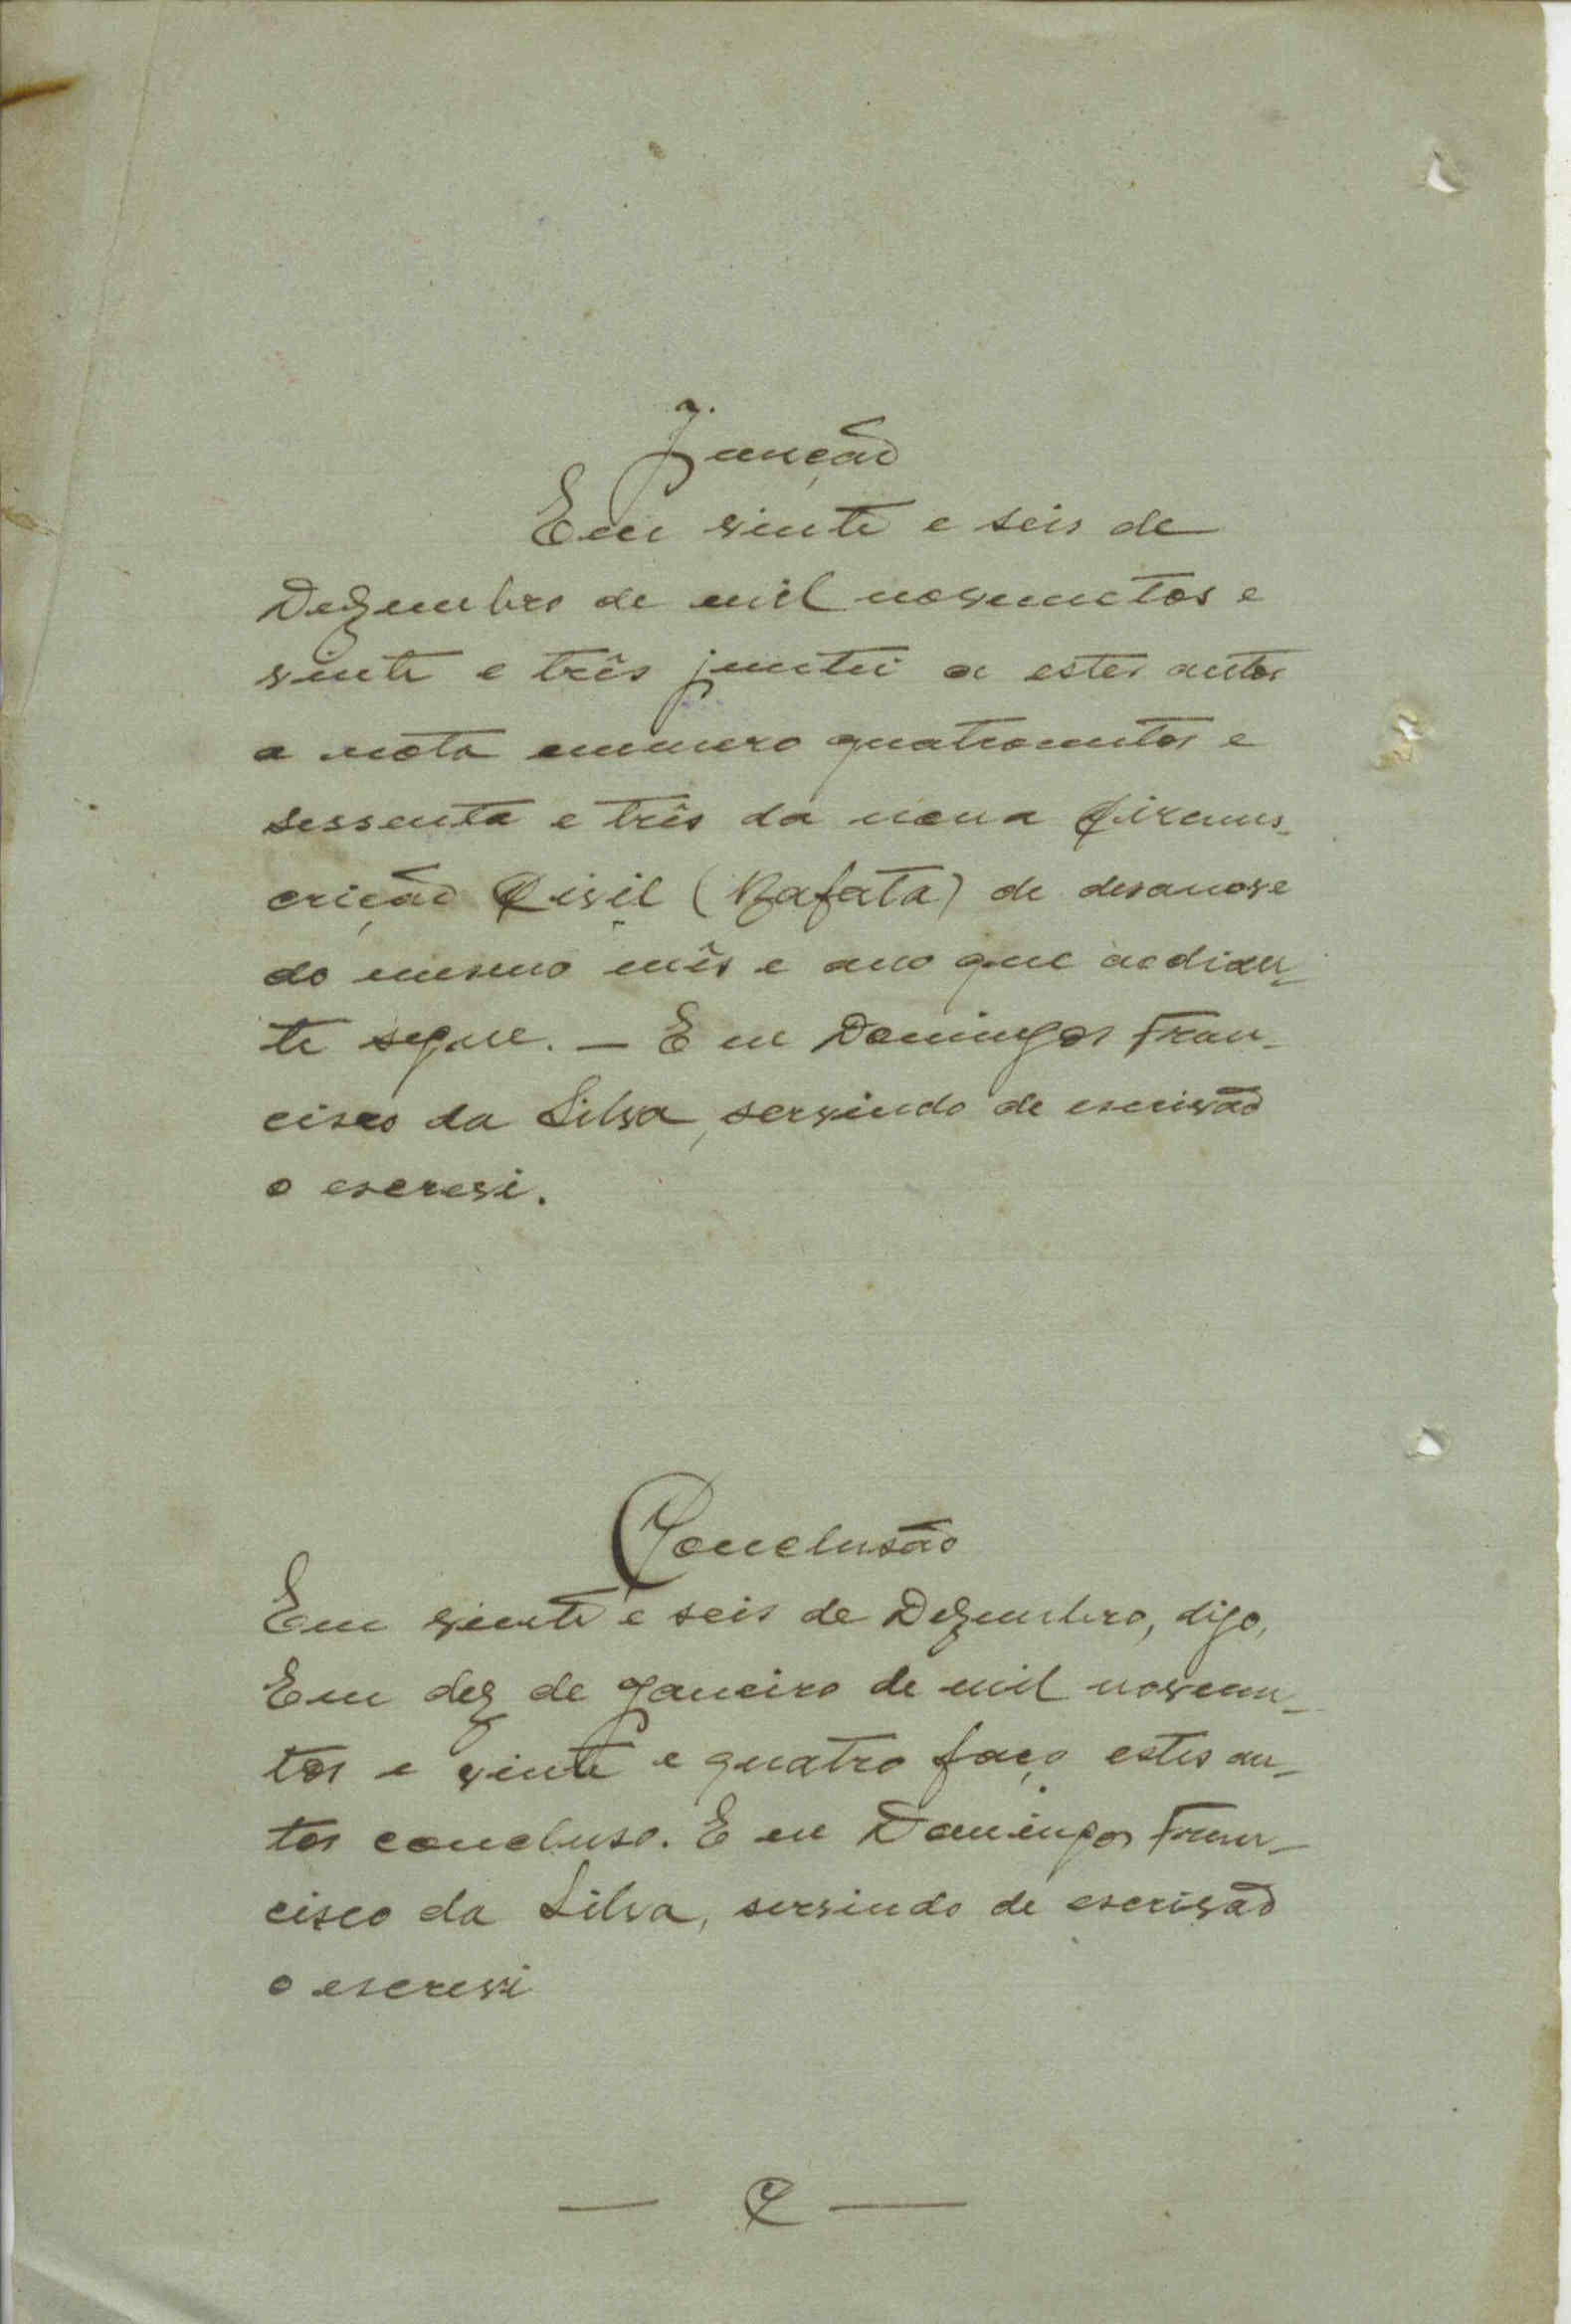 Junção
Em vinte e seis de
Dezembro de mil novecentos e
vinte e três juntei a estes autos
a nota numero quatrocentos e
sessenta e três da nona Circuns-
crição Civil (Bafatá) de desanove
do mesmo mês e ano que adian-
te segue. — E eu Domingos Fran-
cisco da Silva, servindo de escrivão
o escrevi.
Conclusão
Em vinte e seis de Dezembro, digo,
Em dez de Janeiro de mil novecen-
tos e vinte e quatro faço estes au-
tos concluso. E eu Domingos Fran-
cisco da Silva, servindo de escrivão
o escrevi
— C —